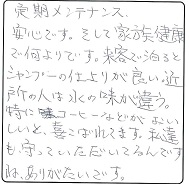 定期メンテナンス、
安心です。そして家族健康
で何よりです。来客で泊ると
シャンプーの仕上りが良い。近
所の人は水の味が違う。
特にコーヒーなどがおい
しいと、喜こばれてます。私達
も、守っていただいてるんです
ね、ありがたいです。